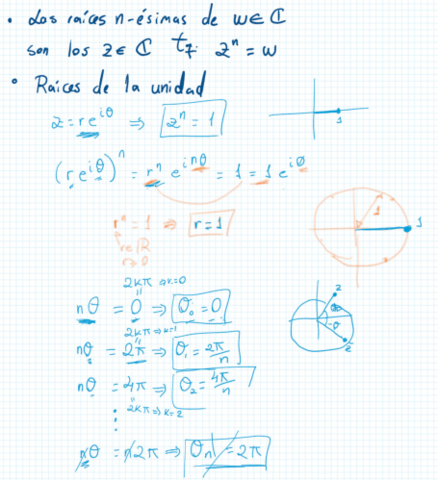 • Las raíces n-ésimas de w ∈ ℂ
son los z ∈ ℂ tq: zⁿ = w
• Raíces de la unidad
z = re^{iθ} ⇒ zⁿ = 1
1
(re^{iθ})ⁿ = rⁿ e^{inθ} = 1 = 1 e^{i0}
rⁿ = 1 ⇒ r = 1
r∈ℝ
r>0
1
1
2kπ k=0
nθ = 0 ⇒ θ₀ = 0
2kπ ⇒ k=1
nθ = 2π ⇒ θ₁ = 2π/n
nθ = 4π ⇒ θ₂ = 4π/n
2kπ ⇒ k=2
nθ = n2π ⇒ θₙ = 2π
z
θ
-θ
z̄